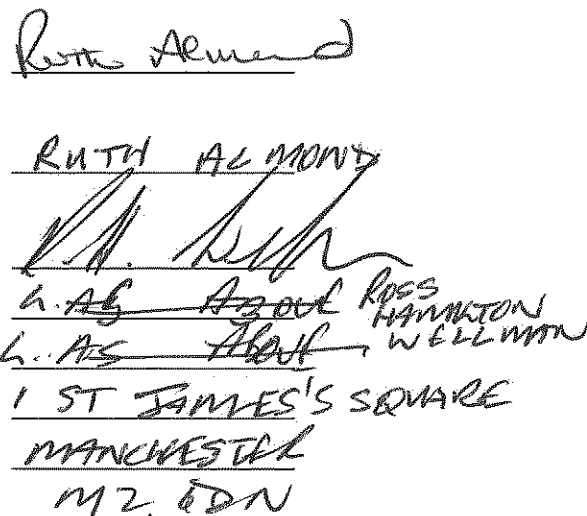 Ruth Almond
RUTH ALMOND
AS ABOVE ROSS
HAMILTON
AS ABOVE WELLMAN
1 ST JAMES'S SQUARE
MANCHESTER
M2 6DN